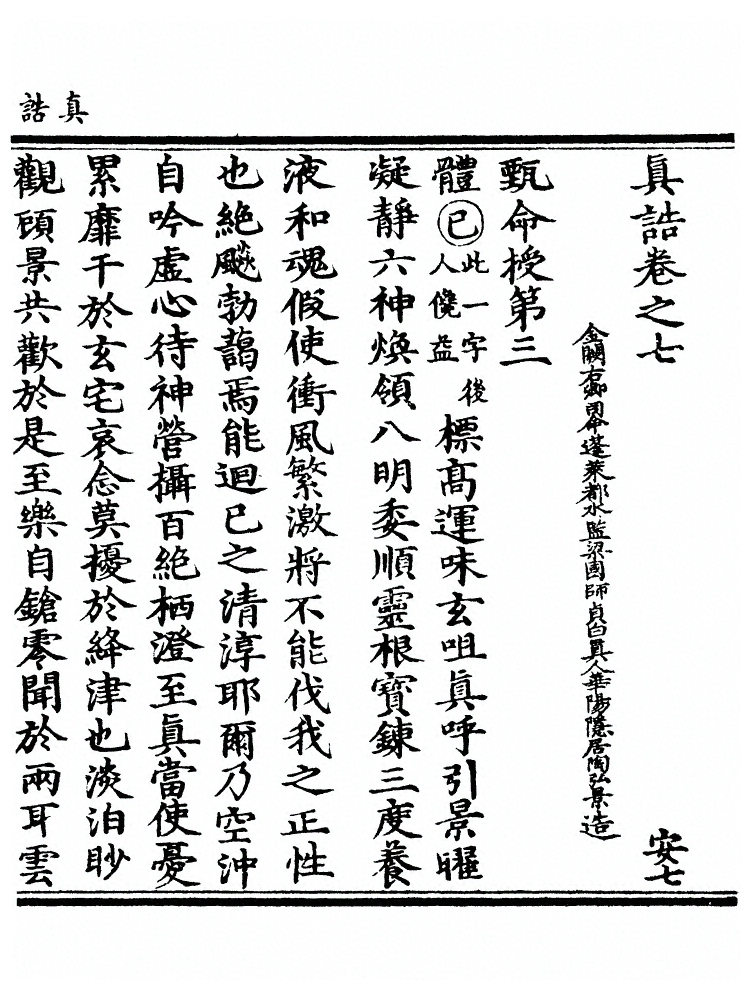 真誥
真誥卷之七 安七
金闕右卿司命蓬萊都水監梁國師貞白真人華陽隱居陶弘景造
甄命授第三
體㊀此一字後人儳益標高運味玄咀真呼引景曜
凝靜六神煥領八明委順靈根寶鍊三度養
液和魂假使衝風繁激將不能伐我之正性
也絕飈勃藹焉能迴己之清淳耶爾乃空沖
自吟虛心待神營攝百絕栖澄至真當使憂
累靡干於玄宅哀念莫擾於絳津也淡泊眇
觀顧景共歡於是至樂自鎗零聞於兩耳雲